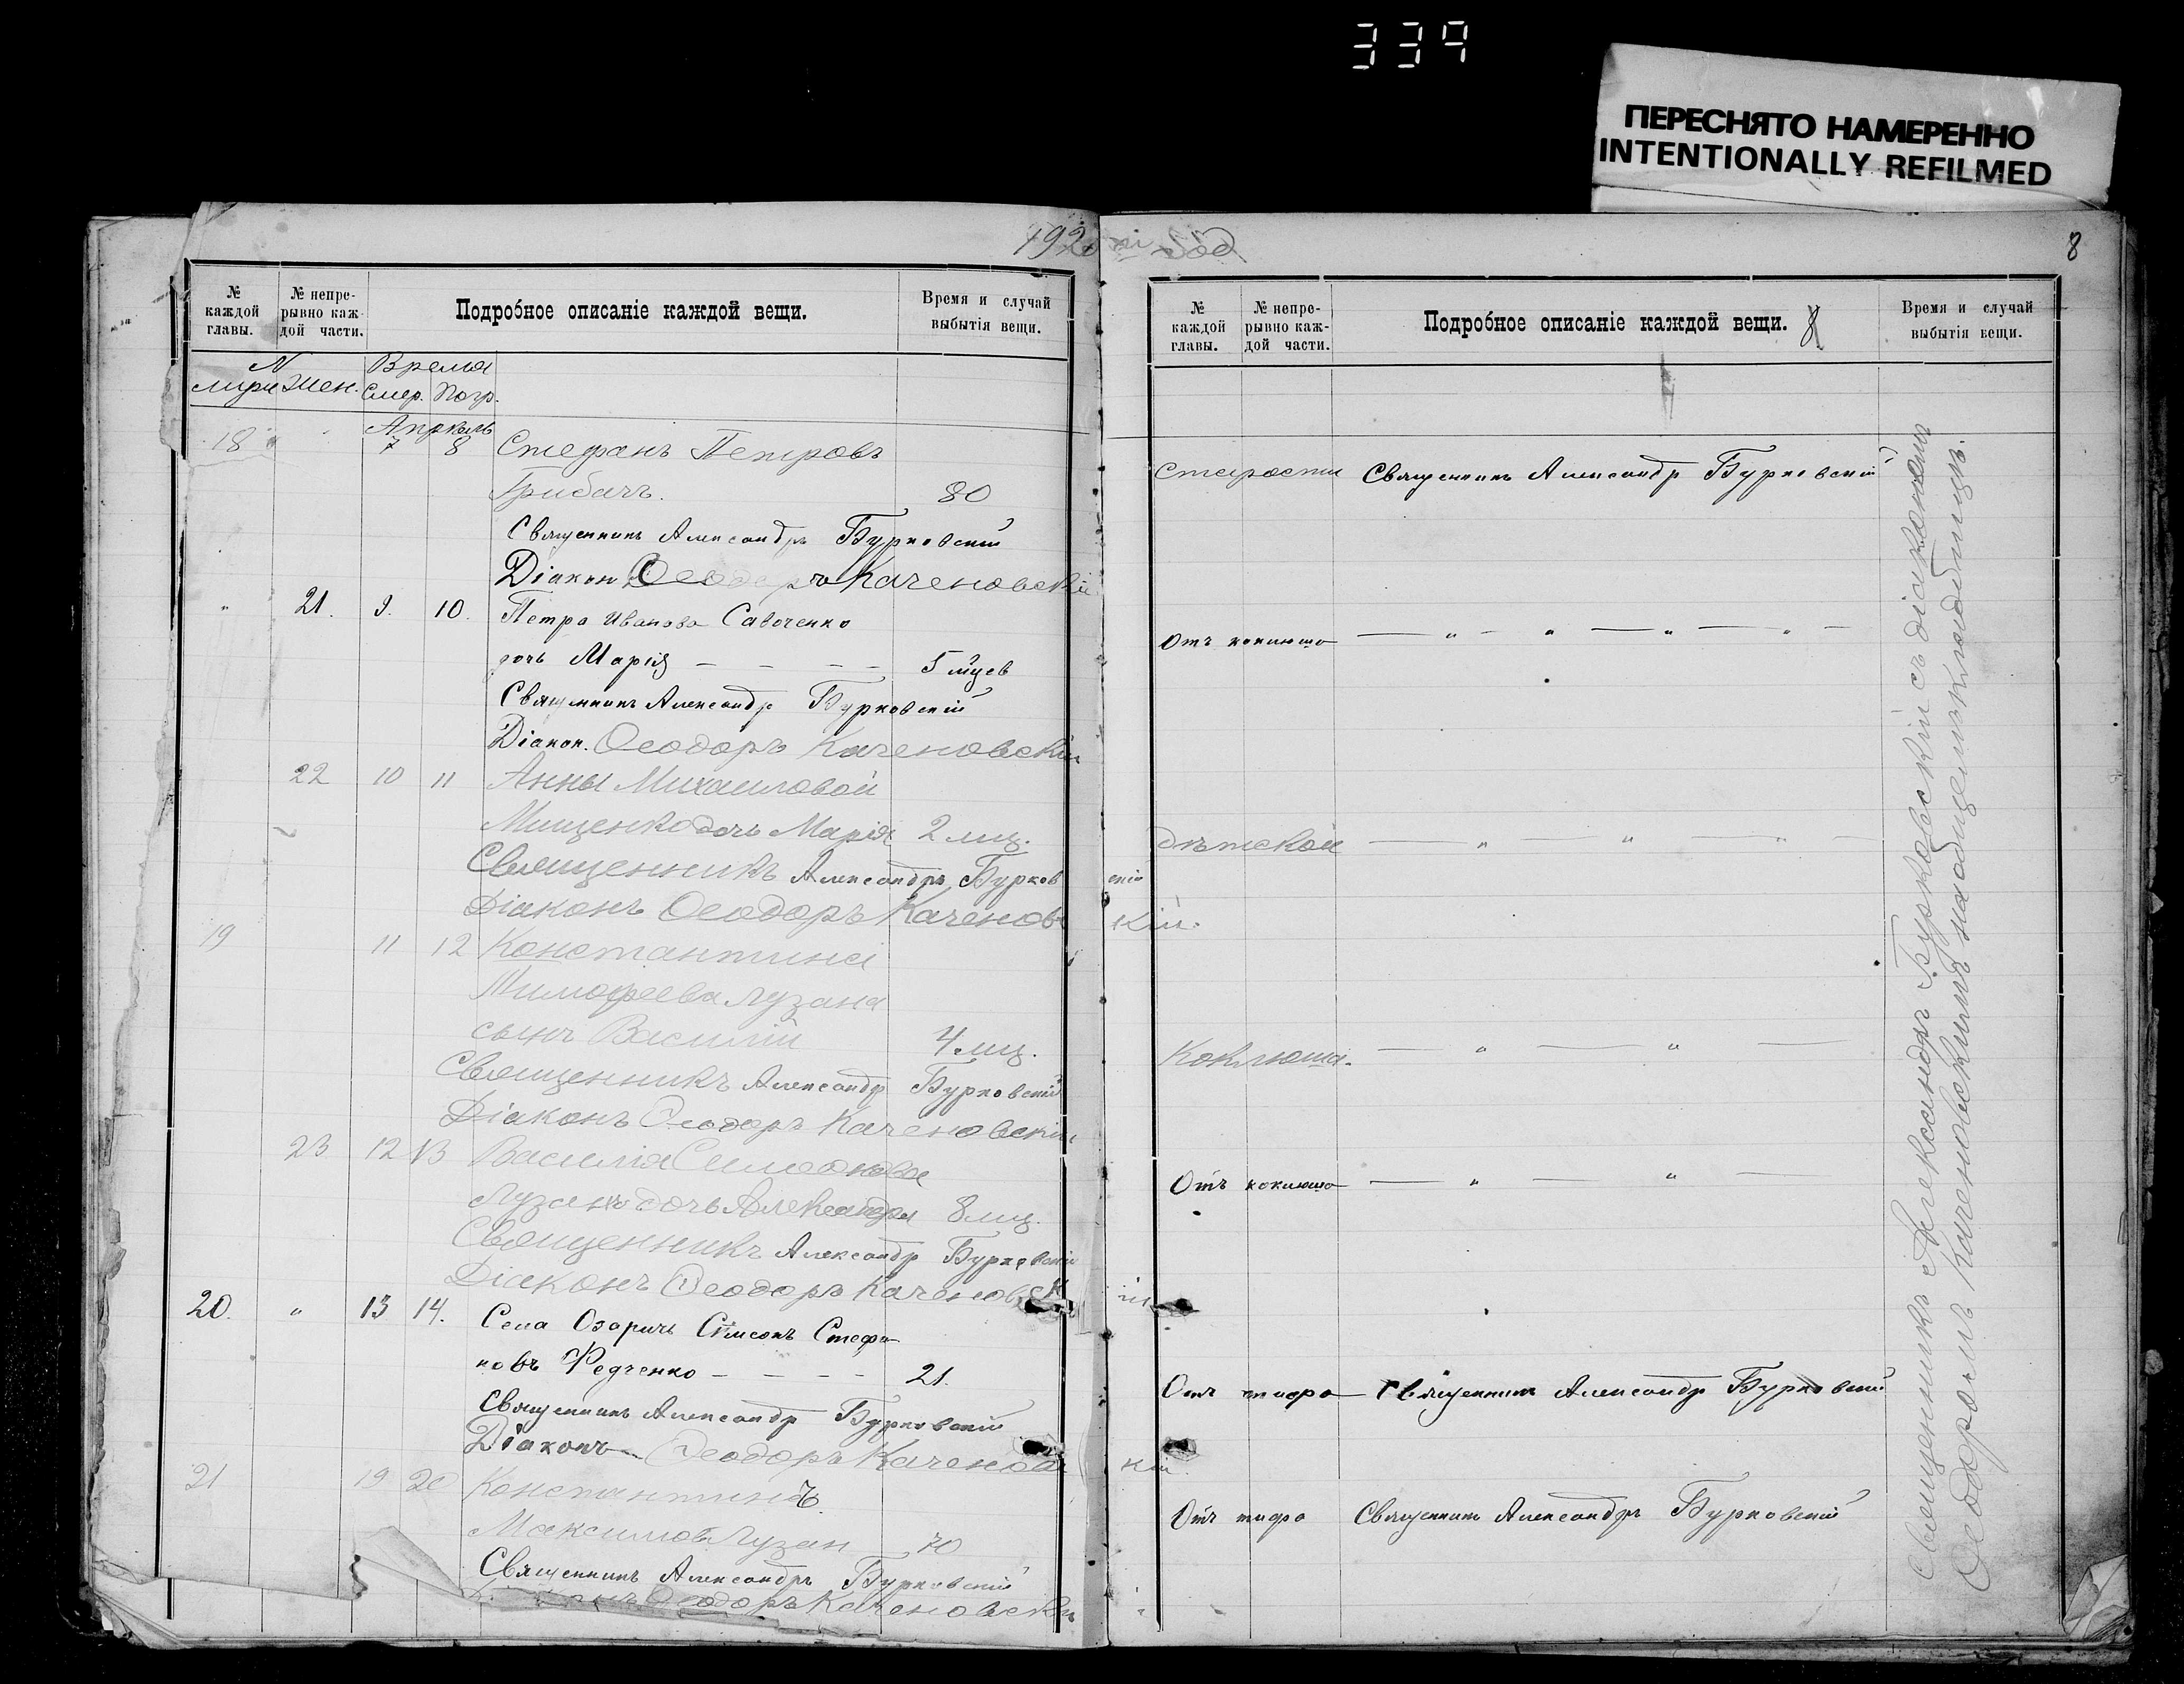 339
ПЕРЕСНЯТО НАМЕРЕННО
INTENTIONALLY REFILMED
1920 й Год
8
№ каждой главы.
№ непрерывно каждой части.
Подробное описаніе каждой вещи.
Время и случай выбытія вещи.
№ каждой главы.
№ непрерывно каждой части.
Подробное описаніе каждой вещи. 8
Время и случай выбытія вещи.
N Время
муж жен. Смер. Погр.
Апрѣль
18 7 8 Стефанъ Петровъ
Грибачъ. 80 Старости Священникъ Александръ Бурковскій
Священникъ Александръ Бурковскій
Діакон Ѳеодоръ Каченовскій
" 21. 9. 10. Петра Иванова Савоченко
дочь Марія – – – – 5 мцев Отъ коклюша — " — " — " — " —
Священникъ Александръ Бурковскій
Діакон. Ѳеодоръ Каченовскій
22 10 11 Анны Михаиловой
Мищенко дочь Марія 2 мц. дѣтской — " — " — " —
Священникъ Александръ Бурковскій
Діаконъ Ѳеодоръ Каченовскій.
19 11 12 Константина
Тимофеева Лузана
сынъ Василій 4 мц. Коклюша. — " — " —
Священникъ Александръ Бурковскій
Діаконъ Ѳеодоръ Каченовскій
23 12 13 Василія Симеонова
Лузанъ дочь Александра 8 мц. Отъ коклюша — " — " —
Священникъ Александръ Бурковскій
Діаконъ Ѳеодоръ Каченовскій
20. " 13 14. Села Озаричъ Симеонъ Стефановъ
Федченко – – – – 21. Отъ тифа — Священникъ Александръ Бурковскій
Священникъ Александръ Бурковскій
Діаконъ Ѳеодоръ Каченовскій
21 19 20 Константинъ
Максимовъ Лузан 70 Отъ тифа Священникъ Александръ Бурковскій
Священникъ Александръ Бурковскій
Ѳеодоръ Каченовскій
Священникъ Александръ Бурковскій съ діакономъ
Ѳеодоромъ Каченовскимъ